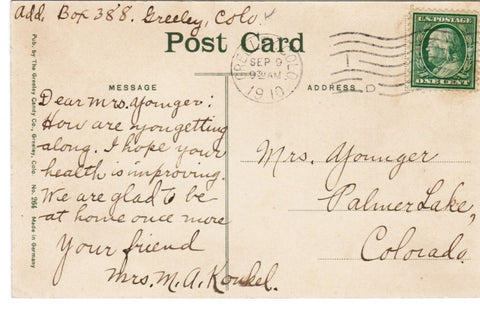 Add. Box 388. Greeley, Colo.
Post Card
GREELEY, COLO.
SEP 9
930AM
1910
D
U.S. POSTAGE
ONE CENT
MESSAGE
ADDRESS
Dear Mrs. Younger:
How are you getting
along. I hope your
health is improving.
We are glad to be
at home once more
Your friend
Mrs. M. A. Koukel.
Mrs. Younger
Palmer Lake,
Colorado.
Pub. by The Greeley Candy Co., Greeley, Colo. No. 264 Made in Germany